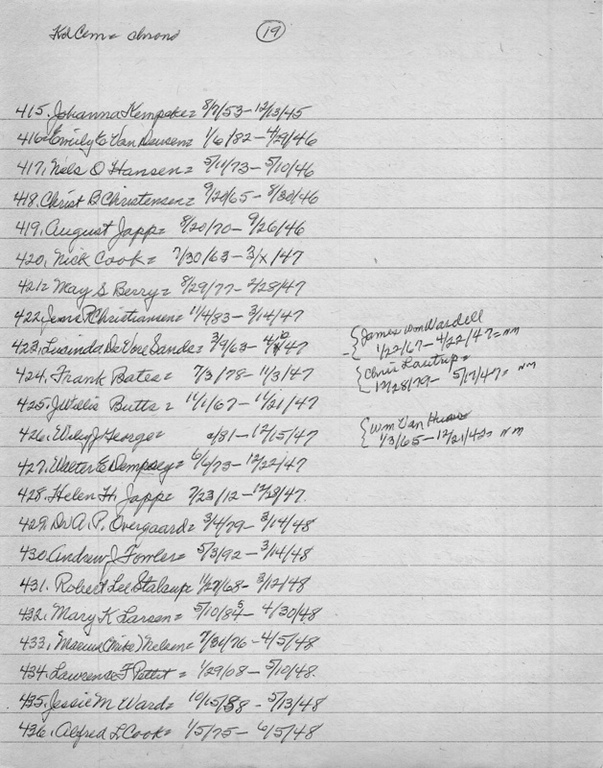 Kd Cem = chrono (19)
415. Johanna Kempske = 8/7/53 - 12/13/45
416. Emily E Van Deusen = 1/6/82 - 4/29/46
417. Nels O Hansen = 5/11/73 - 5/10/46
418. Christ B Christensen = 9/20/65 - 8/30/46
419. August Japp = 8/20/70 - 9/26/46
420. Nick Cook = 7/30/63 - 2/x/47
421 = May S Berry = 8/29/77 - 2/28/47
422. Jens P Christiansen = 11/4/83 - 3/14/47
{James Wm Wardell
423. Lucinda DeVore Sands = 3/9/63 - 4/12/47
1/22/67 - 4/22/47 = nm
{Chris Lautrup =
424. Frank Bates = 7/3/78 - 11/3/47
12/28/79 - 5/17/47 = nm
425. J Willis Butts = 11/1/67 - 11/21/47
{Wm Van
426. Wiley J George = /81 - 12/15/47
1/3/65 - 12/21/45 = nm
427. Walter E Dempsey = 6/6/73 - 12/22/47
428. Helen H. Japp = 7/23/12 - 12/28/47.
429. Dr A. P. Overgaard = 3/4/79 - 3/14/48
430. Andrew J Fowler = 5/3/92 - 3/14/48
431. Robert Lee Stalcup 1/27/68 - 3/12/48
432. Mary K Larsen = 5/10/85 - 4/30/48
433. Marius (Mike) Nelson = 7/31/76 - 4/5/48
434. Lawrence F Pettit = 1/29/08 - 5/10/48.
435. Jessie M Ward = 10/15/88 - 5/13/48
436. Alfred L Cook = 1/5/75 - 6/5/48